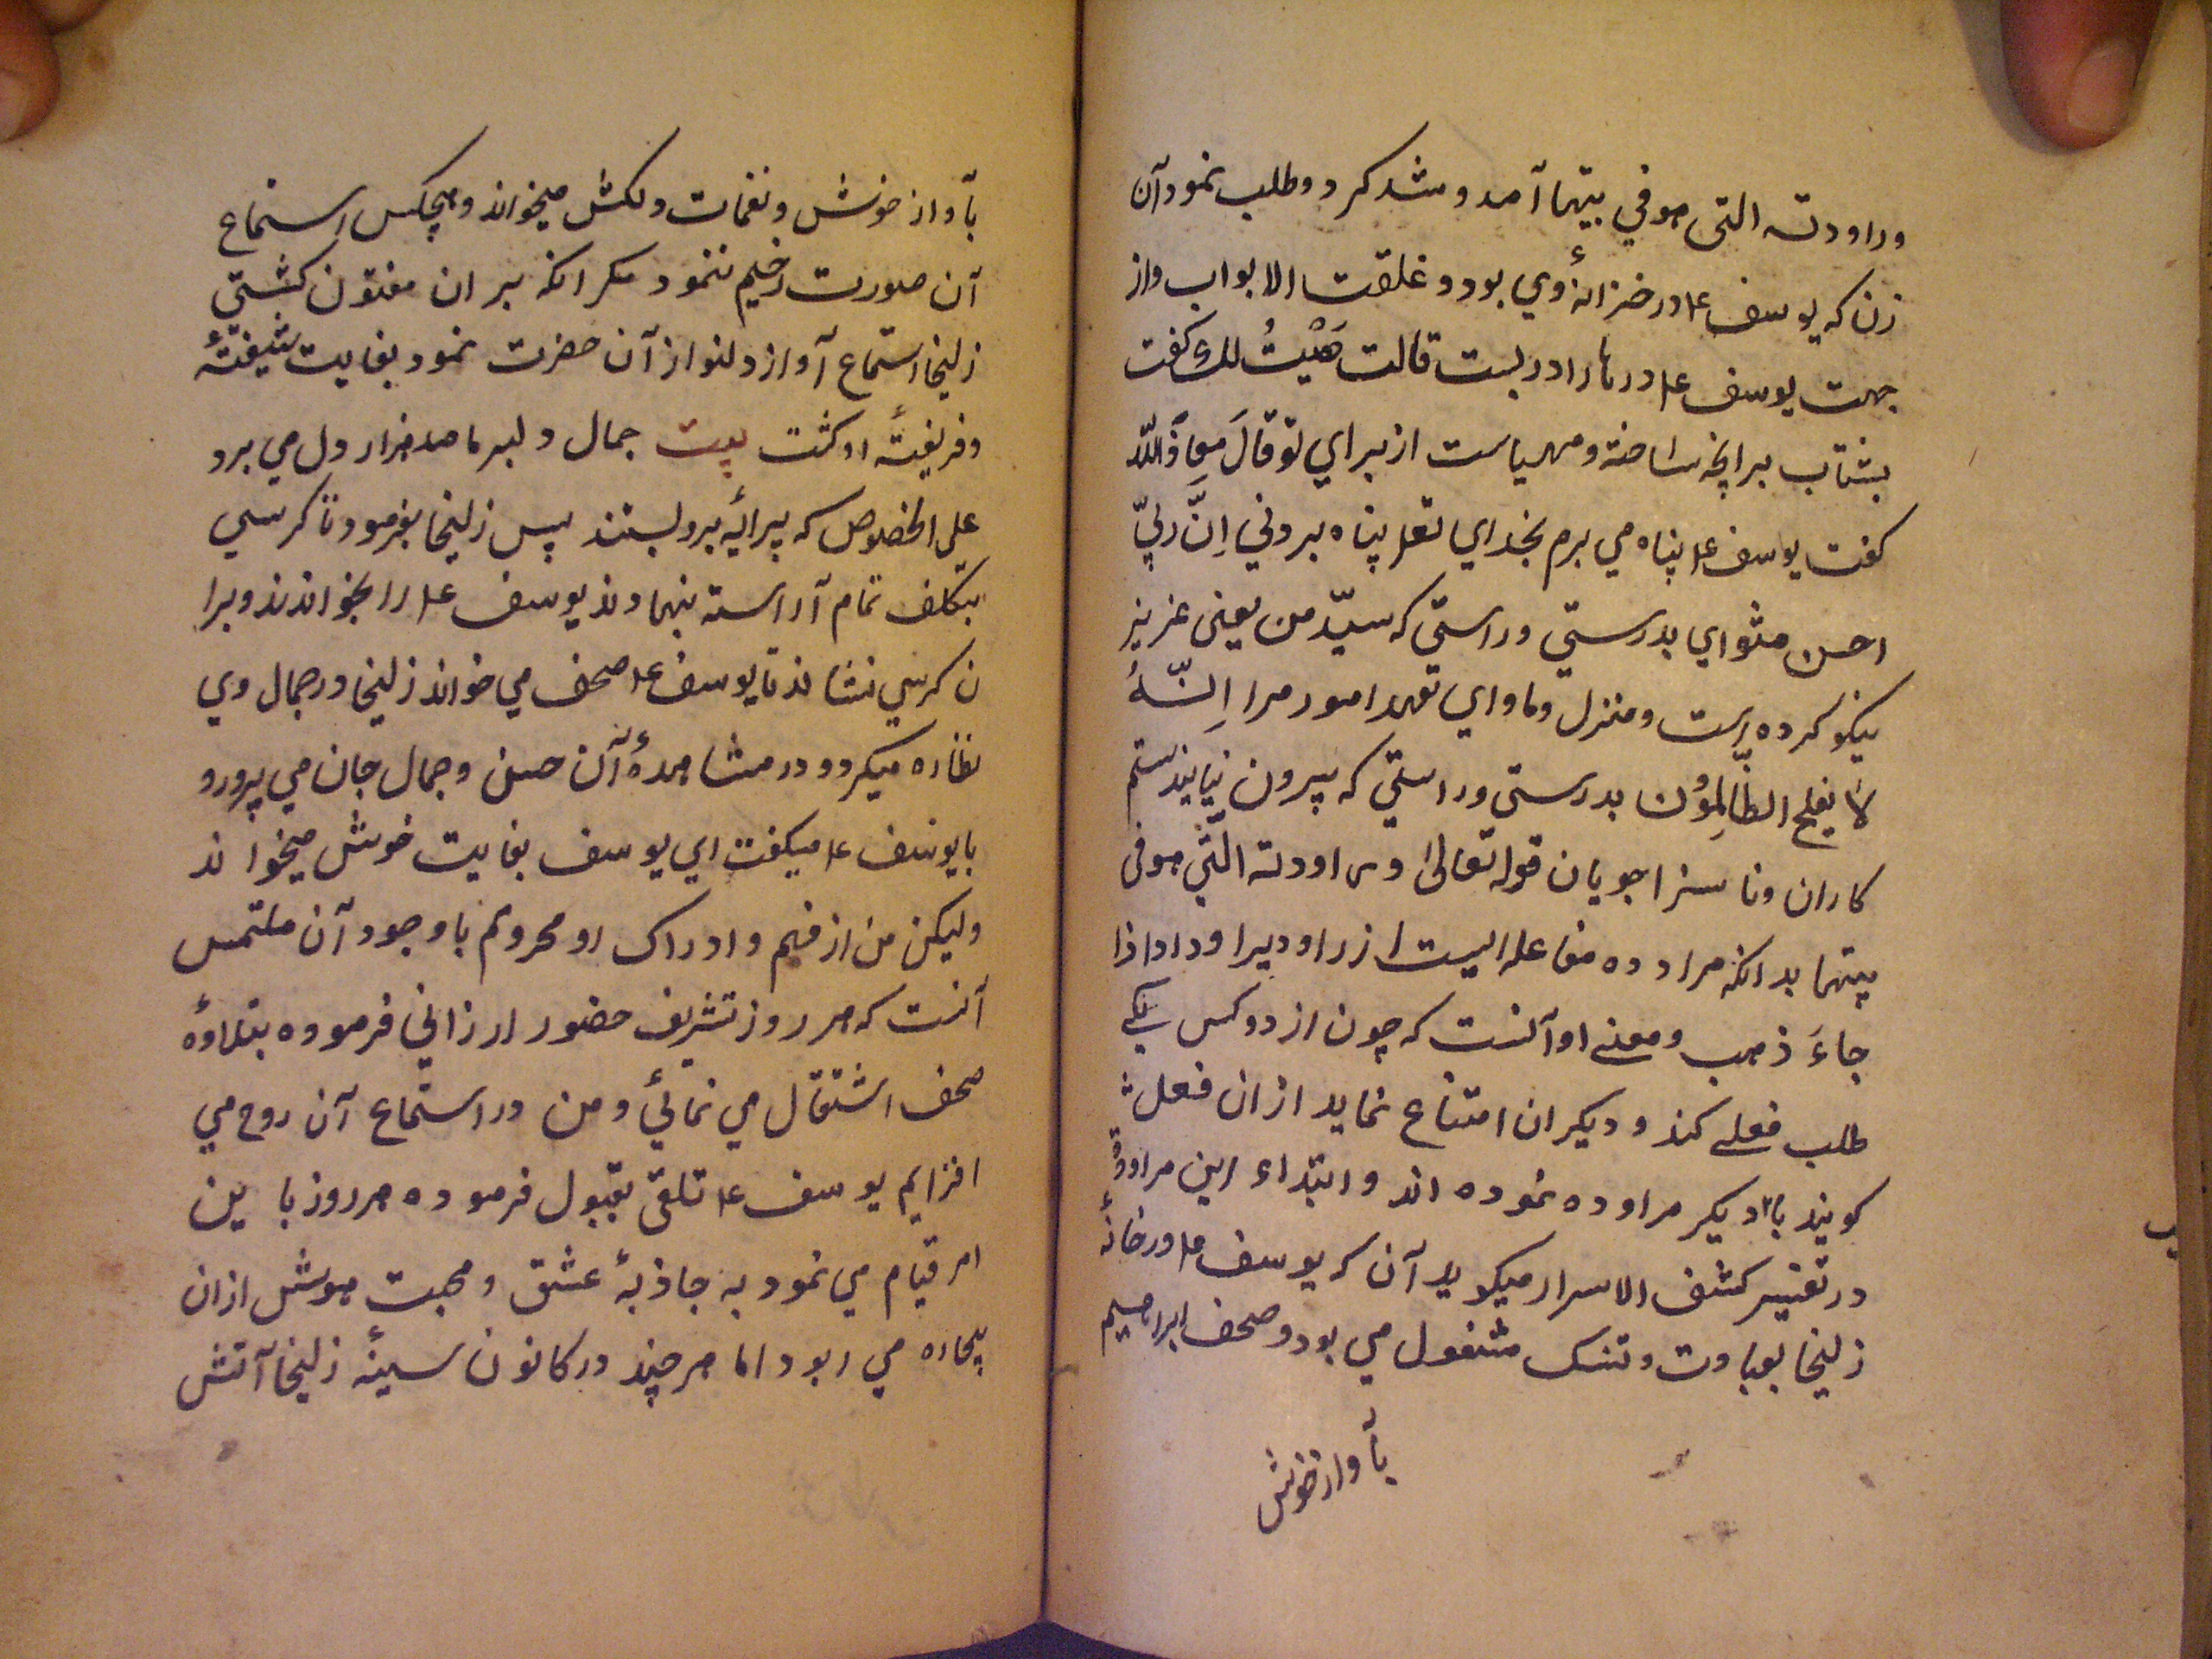 وراودته التی هو في بیتها آمد و شد کرد و طلب نمود آن
زن که یوسف ع‍م در خزانهٔ وي بود و غلقت الابواب و از
جهت یوسف ع‍م درها را در بست قالت هَیْتُ لك کفت
بشتاب برانچه ساخته و مهیاست از برای تو قالَ معاذَ اللّه
کفت یوسف ع‍م پناه می برم بخدای تعلی پناه بردنی اِنّ ربّي
احسن مثوای بدرستی و راستی که سیّد من یعنی عزیز
نیکو کرده است و منزل و ماوای تعهد امور مرا اِنّهُ
لا یفلح الظّالِمُون بدرستی و راستی که بیرون نیایند ستم
کاران و ناسزا جویان قوله تعالیٰ وراودته الّتي هو في
بیتها بدانکه مراوده مفاعله ایست از راود یراود اذا
جاءَ ذهب و معنے او آنست که چون از دو کس یکے
طلب فعلے کند و دیکر ان امتناع نماید از ان فعل
کویند با دیکر مراوده نموده اند و ابتداء این مراودهٔ
در تفسیر کشف الاسرار میکوید آن که یوسف ع‍م در خانهٔ
زلیخا بعبادت و تنسک مشغول می بود و صحف ابراهیم
بآواز خوش
بآواز خوش و نغمات دلکش میخواند و هیچکس استماع
آن صورت رخیم ننمود مکر انکه بران مفتون کشتی
زلیخا استماع آواز دلنواز آن حضرت نمود بغایت شیفتهٔ
و فریفتهٔ او کشت بیت جمال دلبر ما صد هزار دل می برد
علی الخصوص که پیرایهٔ برو بستند پس زلیخا بفرمود تا کرسی
بتکلف تمام آراسته بنهادند یوسف ع‍م را بخواندند و برا
ن کرسی نشاند تا یوسف ع‍م صحف می خواند زلیخا در جمال وی
نظاره میکرد و در مشاهدهٔ آن حسن و جمال جان می پرورد
با یوسف ع‍م میکفت ای یوسف بغایت خوش میخوا ند
ولیکن من از فهم و ادراک او محرومم با وجود آن ملتمس
آنست که هر روز تشریف حضور ارزانی فرموده بتلاوهٔ
صحف اشتغال می نمائي و من در استماع آن روح می
افزایم یوسف ع‍م تلقی بقبول فرموده هر روز با ین
امر قیام می نمود به جاذبهٔ عشق و محبت هوش ازان
بیچاره می ربود اما هر چند در کانون سینهٔ زلیخا آتش